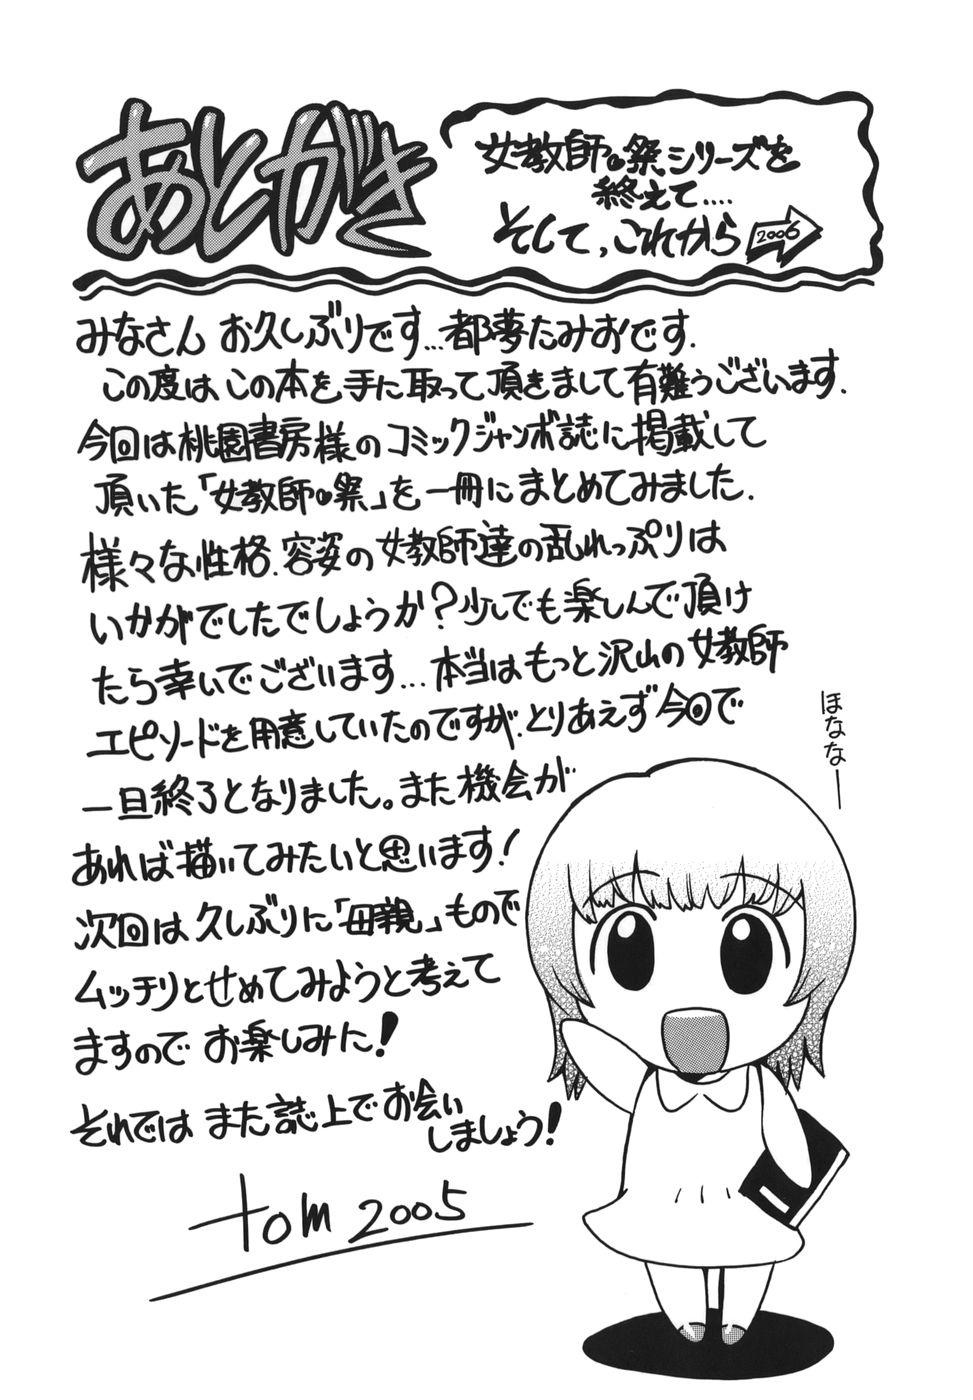 あとがき
女教師の祭シリーズを
終えて....
そして、これから
2006
みなさん お久しぶりです…都夢たみおです.
この度は、この本を、手に取って頂きまして有難うございます.
今回は桃園書房様のコミックジャンボ誌に掲載して
頂いた「女教師の祭」を一冊にまとめてみました.
様々な性格.容姿の女教師達の乱れっぷりは
いかがでしたでしょうか?少しでも楽しんで頂け
たら幸いでございます...本当はもっと沢山の女教師
エピソードを用意していたのですが、とりあえず今回で
一旦終了となりました。また機会が
あれば描いてみたいと思います!
次回は久しぶりに「母親」もので
ムッチリとせめてみようと考えて
ますので お楽しみに!
それでは また誌上でお会い
しましょう!
tom 2005
ほななー